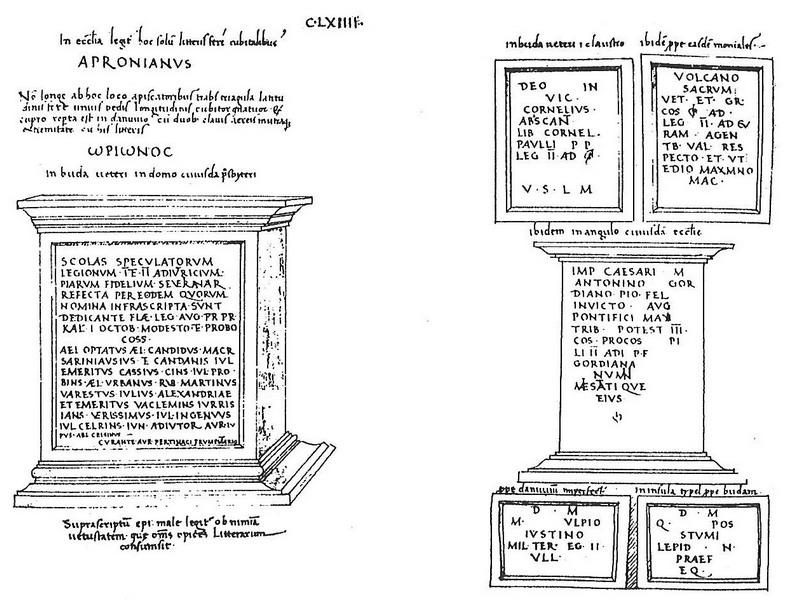 C·LXIIII·
In ecclia legit hoc solu litteris fere cubitalibus
APRONIANVS
No longe ab hoc loco apiscatoribus trabs
fere unius pedis longitudinis cubitor
repta est in danuvio cu duob clavis aereis
extremitate cu his litteris
ωΡΙωΝΟC
in buda veteri in domo cuiusda psbyteri
SCOLAS SPECVLATORVM
LEGIONVM·I·E·II ADIVRICIVM·
PIARVM FIDELIVM·SEVERNAR
REFECTA PER EODEM QVORVM
NOMINA INFRASCRIPTA SVNT
DEDICANTE FLÆ·LEG·AVG·PR PR·
KAL· I OCTOB·MODESTO·E·PROBO
COSS·
AEL OPTATVS ÆL· CANDIDVS·MACR
SARINIAVSIVS·E CANDANIS IVL
EMERITVS CASSIVS·CINS·IVL·PRO·
BINS·ÆL·VRBANVS·RVB·MARTINVS
VARESTVS IVLIVS·ALEXANDRIAE
ET EMERITVS VACLEMINS IVRRIS
IANS·VERISSIMVS·IVL·INGENVVS
IVL CELRINS·IVN·ADIVTOR AVR·IV
PVS·AEL CRISINVS —
CVRANTE AVR PERTINACI FRVMENTARIO
Suprascriptu epi male legit ob nimia
vetustatem que oms apices litterarum
consumsit·
in buda veteri i claustro
DEO IN
VIC·
CORNELIVS·
ABSCANT
LIB CORNEL·
PAVLLI P P
LEG II·AD
V·S·L M
ibide ppe easde moniales·
VOLCANO
SACRVM:
VET·ET·GR:
COS AD·
LEG II·AD EV
RAM·AGEN
TB·VAL·RES
PECTO·ET·VT
EDIO MAXMNO
MAC·
ibidem in angulo cuiusda ecclie
IMP CAESARI M
ANTONINO GOR
DIANO·PIO·FEL
INVICTO· AVG
PONTIFICI MAX
TRIB· POTEST III·
COS·PROCOS PI
LI II ADI P·F
GORDIANA
NVMN
MESATI QVE
EIVS
ppe danuviu imperfect
D· M
M· VLPIO
IVSTINO
MIL·TER· EG· II·
VLL·
in insula ppe budam
D· M
Q· POS
STVMI
LEPID· N·
PRAEF
EQ·